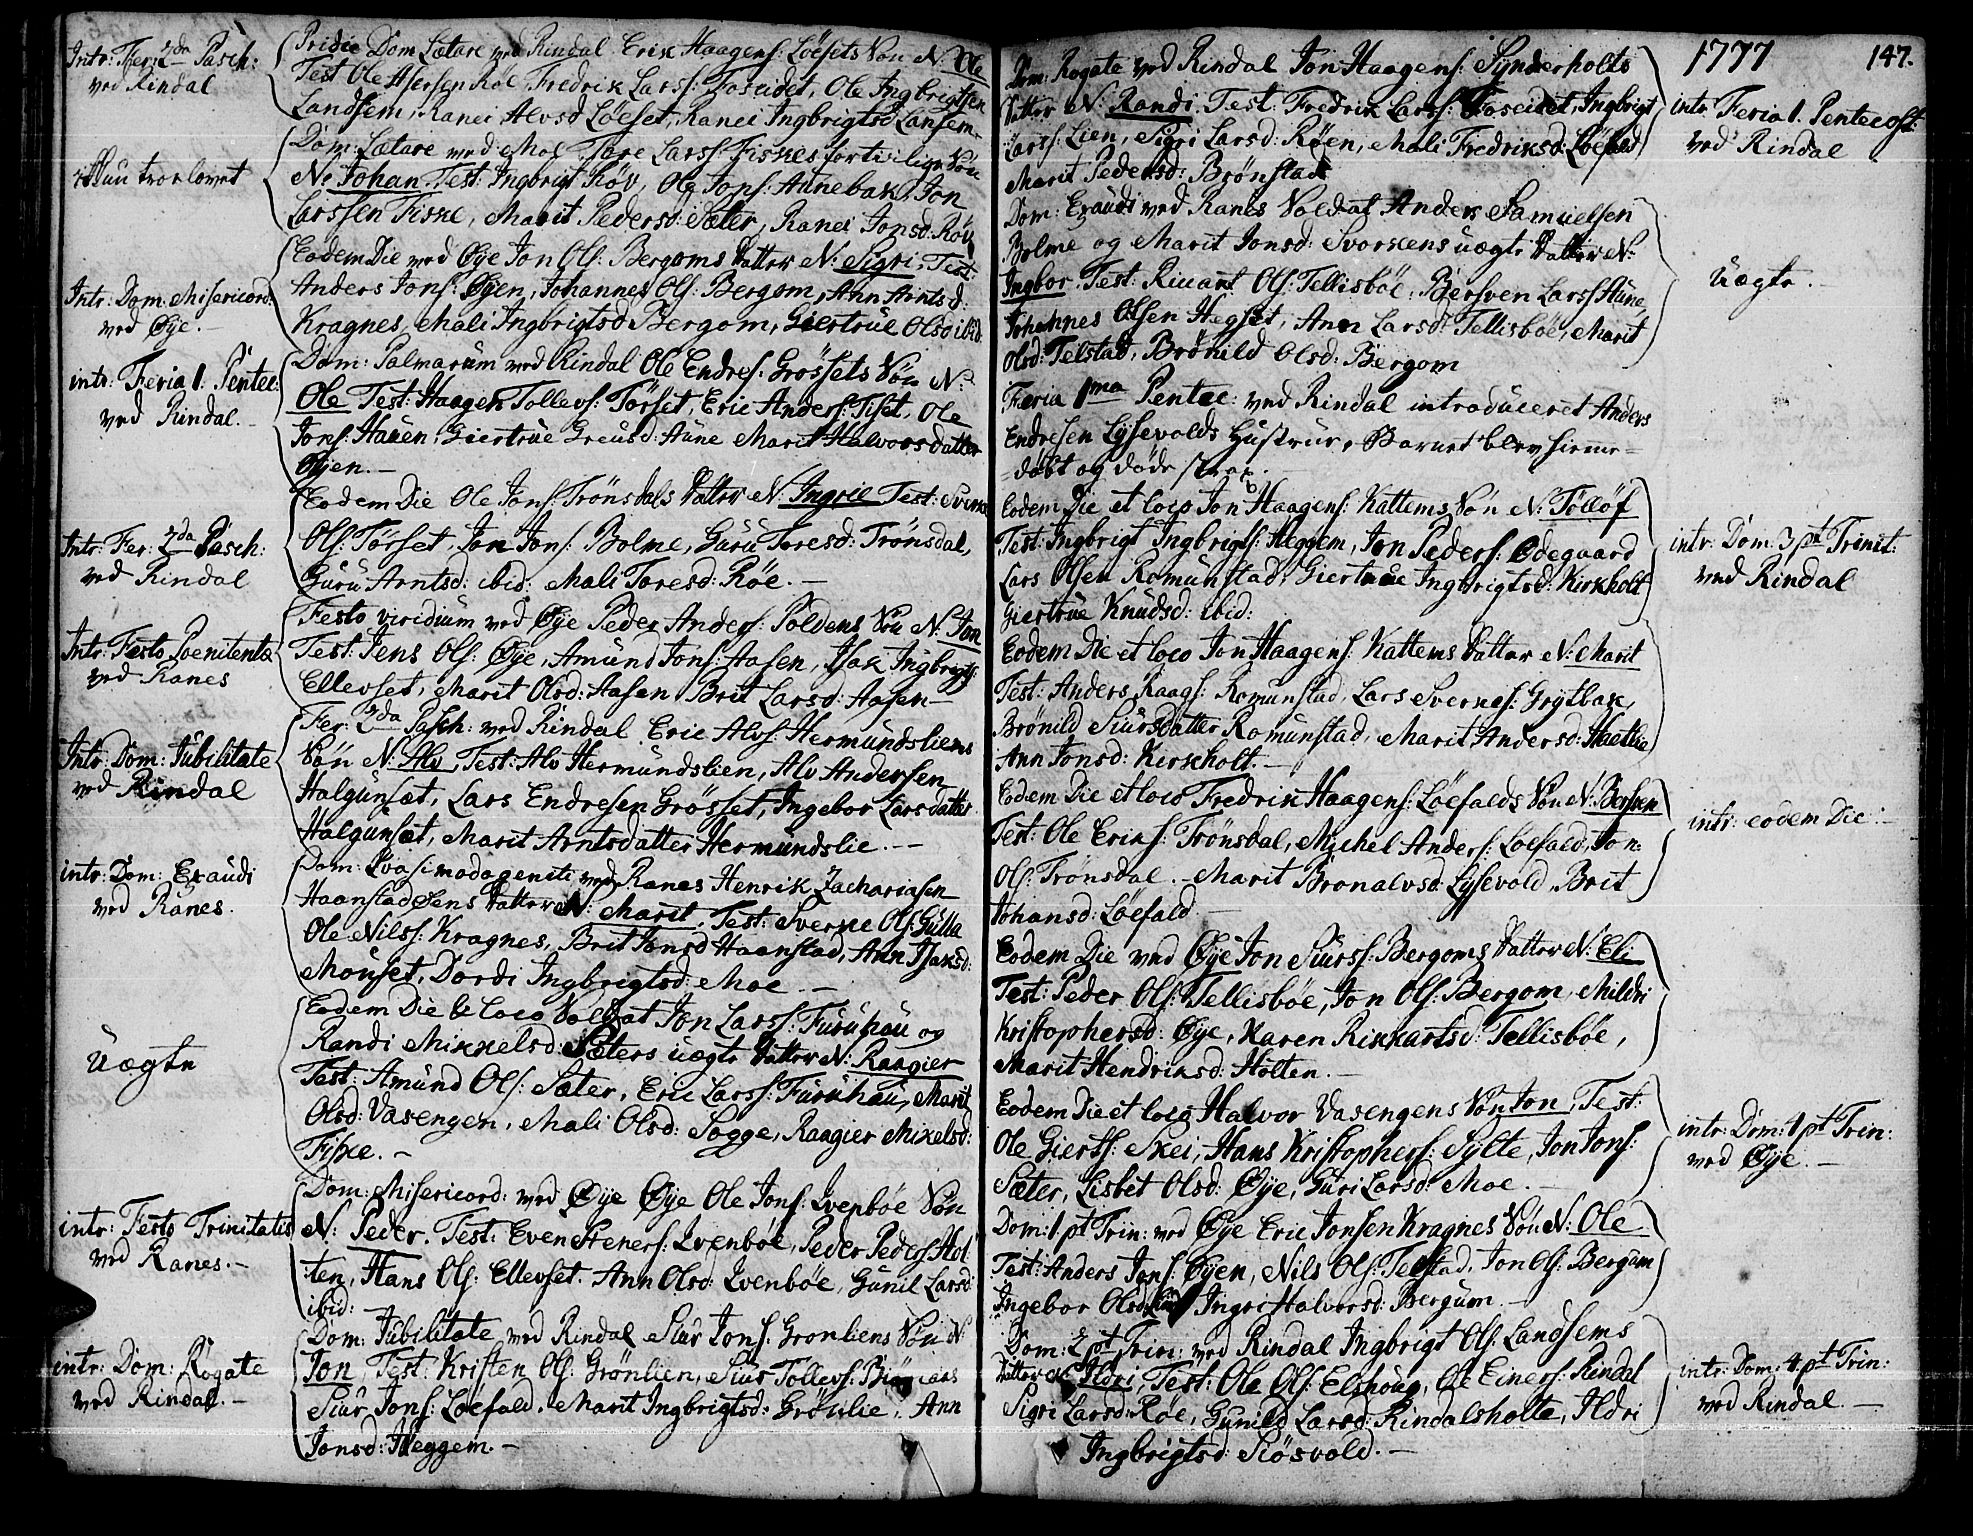 Intr: Fer: 2da Pasch:
ved Rindal
Pridie Dom Lætare ved Rindal Erik Haagens: Löesets Sön N: Ole
Test Ole Asersen Roe Fredrik Larss: Foseidet, Ole Ingbrigtsen
Landsem, Ranei Alvsd Löeset, Ranei Ingbrigtsd Lansem
Dom: Lætare ved Moe Tore Larss: Fiskes for tilig Sön
N: Johan Test: Ingbrigt Röv, Ole Jons: Aunebak, Jon
Larssen Fiske, Marit Pedersd: Sæter, Ranei Jonsd: Röv
trovlovet
Eodem Die ved Øye Jon Ols: Bergoms Datter N: Sigri, Test:
Anders Jons: Øyen, Johannes Ols: Bergom, Ann Arntsd:
Kragnes, Mali Ingbrigtsd Bergom, Giertrue Olsd ibid.
Intr: Dom: Misericord:
ved Øye.
Dom: Palmarum ved Rindal Ole Endres: Grössets Sön N:
Ole Test: Haagen Tollevs: Törset, Eric Anders: Tiset, Ole
Jons: Hauen, Giertrue Greusd: Aune Marit Halvors datter
Øyen.
intr: Feria 1. Pentec:
ved Rindal.
Eodem Die Ole Jons: Trönsdals Datter N: Ingrie Test: Sverre
Ols: Törset, Jon Jons: Bolme, Guru Toresd: Trönsdal,
Guru Arntsd: ibid: Mali Toresd: Röe.
Intr: Fer: 2da Pasch:
ved Rindal
Festo viridium ved Øye Peder Anders: Poldens Sön N: Jon
Test: Jens Ols: Øye, Amund Jons: Aasen, Isak Ingbrigts:
Ellevset, Marit Olsd: Aasen Brit Larsd: Aasen
Intr: Festo Poenitentæ
ved Ranes
Fer: 2da Pasch: ved Rindal Eric Alvs: Hermundsliens
Sön N: Alv Test: Alv Hermundslien, Alv Andersen
Halgunsæt, Lars Endresen Grösset, Ingebor Lars datter
Halgunsæt, Marit Arntsdatter Hermundslie.
Intr: Dom: Jubilitate
ved Rindal
Dom: Qvasimodogeniti ved Ranes Henrik Zachariasen
Haanstadøens Datter N: Marit, Test: Sverke Ols: Gulla
Ole Nilss: Kragnes, Brit Jonsd Haanstad, Ann Isaksd:
Mouset, Dordi Ingbrigtsd: Moe
intr: Dom: Exaudi
ved Ranes.
Eodem Die & loco Soldat Jon Larss: Furuhau og
Randi Mikkelsd: Sæters uægte Datter N: Raagier
Test: Amund Ols: Sæter, Eric Larss: Furuhau, Marit
Olsd: Vasengen, Mali Olsd: Sogge, Raagier Mikelsd:
Fiske.
Uægte
Dom: Misericord: ved Øye Øye Ole Jons: Qvenböe Sön
N: Peder. Test: Even Steners: Qvenböe, Peder Peders: Hol
ten, Hans Ols: Ellevset. Ann Olsd: Qvenböe, Gunil Larsd:
ibid:
intr: Festo Trinitatis
ved Ranes.
Dom: Jubilitate ved Rindal Siur Jons: Gronliens Sön N:
Jon, Test: Kristen Ols: Grönlien, Siur Tollevs:
Siur Jons: Löefald. Marit Ingbrigtsd: Grönlie, Ann
Jonsd: Heggem.
intr: Dom: Rogate
ved Rindal.
1777 147.
Dom: Rogate ved Rindal Jon Haagens: Synderholts
Datter N: Randi, Test: Fredrik Larss: Foseidet, Ingbrigt
Larss: Lien, Sigri Larsd: Röen, Mali Fredriksd: Löefald
Marit Pedersd: Brönstad
intr: Feria 1. Pentecost:
ved Rindal
Dom: Exaudi ved Ranes Soldat Anders Samuelsen
Bolme og Marit Jonsd: Svorkens uægte Datter N:
Ingbor, Test: Ricart Ols: Tellisböe, Bersven Larss Aune,
Johannes Olsen Hegset, Ann Larsd: Tellisböe, Marit
Olsd: Telstad, Brönild Olsd: Bergom
Uægte.
Feria 1ma Pentec: ved Rindal introduceret Anders
Endresen Lysevolds Hustrue, Barnet blev hieme-
-döbt og döde strax.
Eodem Die et loco Jon Haagens: Kattems Sön N: Tollöf
Test: Ingbrigt Ingbrigts: Heggem, Jon Peders: Ødegaard
Lars Olsen Romunstad, Giertrue Ingbrigtsd: Kirkholt
Giertrue Knudsd: ibid:
intr: Dom: 3 pt Trinit:
ved Rindal
Eodem Die et loco Jon Haagens: Kattems Datter N: Marit
Test: Anders Raags: Romunstad, Lars Svernes: Grytbak,
Brönild Siursdatter Romunstad, Marit Andersd: Haetlie
Ann Jonsd: Kirkholt.
Eodem Die et loco Fredrik Haagens: Löefalds Sön N: Bersven
Test: Ole Eriks: Trönsdal, Michel Anders: Loefald, Jon
Ols: Trönsdal. Marit Bronalvsd: Lysevold, Brit
Johansd: Löefald
intr: eodem Die
Eodem Die ved Øye Jon Siurss: Bergoms Datter N: Eli
Test: Peder Ols: Tellisböe, Jon Ols: Bergom, Mildri
Kristophersd: Øye, Karen Rikkartsd: Tellisböe,
Marit Hendriksd: Holten.
Eodem Die et loco Halvor Vasengens Sön Jon, Test:
Ole Gierss: Skei, Hans Kristophers: Sylte, Jon Jons:
Sæter, Lisbet Olsd: Øye, Guri Larsd: Moe.
intr: Dom: 1 pt Trin:
ved Øye.
Dom: 1 pt Trin: ved Øye Eric Jonsen Kragnes Sön N: Ole
Test: Anders Jons: Øyen, Nils Ols: Telstad, Jon Ols: Bergum
Ingebor Olsd: Ingri Halvorsd: Bergum.
Dom: 2 pt Trin: ved Rindal Ingbrigt Ols: Landsems
Datter N: Ildri, Test: Ole Ols: Elshoug, Ole Einers: Rindal
Sigri Larsd: Röe, Gunild Larsd: Rindalsholte, Ildri
Ingbrigtsd: Siösvold.
intr: Dom: 4 pt Trin:
ved Rindal.